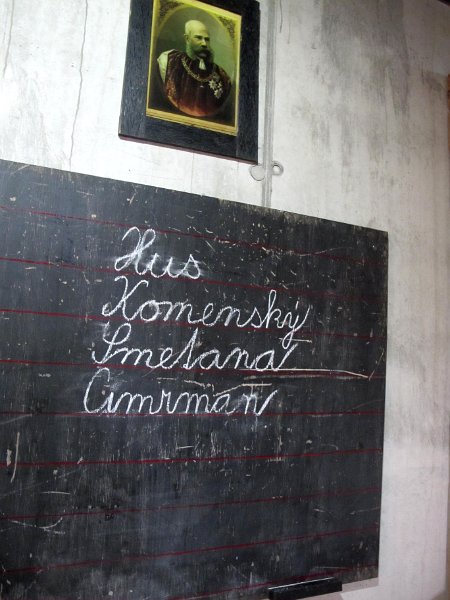 Hus
Komenský
Smetana
Cimrman